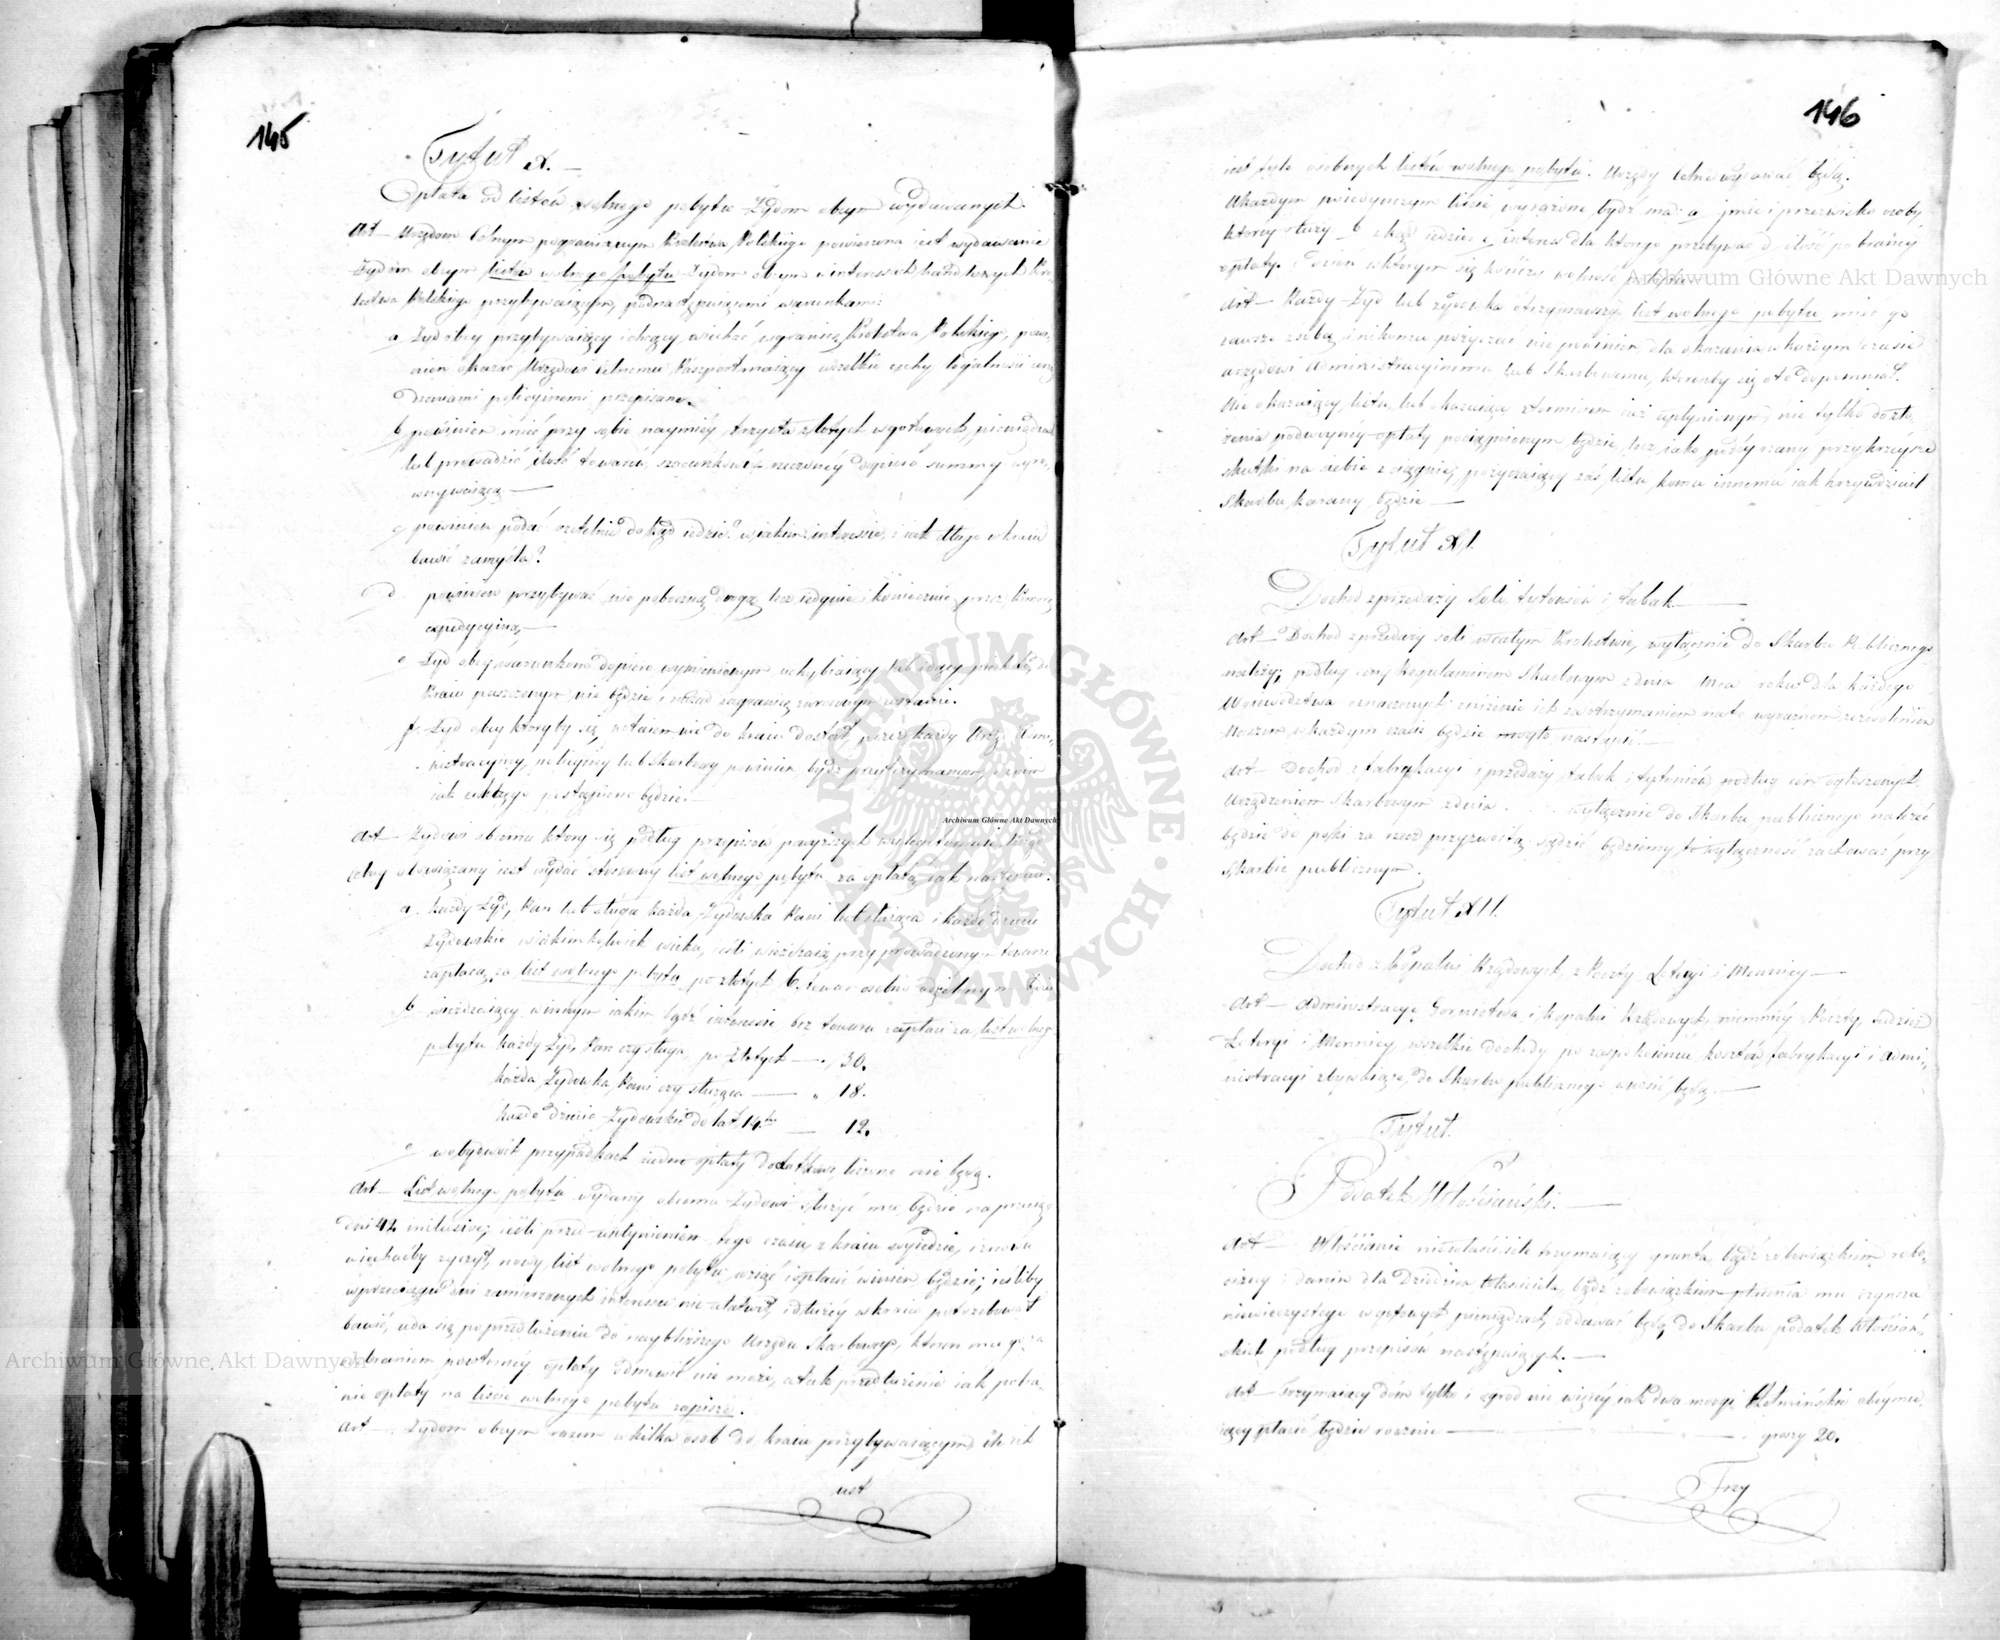 145
Tytuł X.
Opłata od listów wolnego pobytu Żydom obcym wydawanych.
Art — Urzędom Celnym pogranicznym Królestwa Polskiego powierzone iest wydawanie
Żydom obcym listów wolnego pobytu Żydom obcym w interessach handlowych Kró-
lestwa Polskiego przybywaiącym, pod następuiącemi warunkami:
a Żyd obcy przybywaiący i chcący wiechać w granice Królestwa Polskiego, powi-
nien okazać Urzędowi Celnemu Paszport maiący wszelkie cechy legalności urzą-
dzeniami policyinemi przepisane.
b powinien mieć przy sobie naymniéy trzysta złotych w gotowych pieniądzach
lub prowadzić ilość towaru, szacunkowi rzeczonéy dopiero summy wyró-
wnywaiącą —
c powinien podać rzetelnie dokąd iedzie? w iakim interessie, i iak długo w kraiu
bawić zamyśla?
d powinien przybywać nie poboczną drogą lecz iedynie i koniecznie przez Komorę
expedycyiną, —
e Żyd obcy warunkom dopiero wymienionym uchybiaiący lub iednemu z nich, do
kraiu puszczonym nie będzie, i nazad za granicę zwróconym zostanie.
f. Żyd obcy któryby się potaiemnie do kraiu dostał, przez każdy Urząd Admi-
nistracyiny, policyiny lub Skarbowy powinien bydź przytrzymanym, i z nim
iak z włóczęgą postąpiono będzie —
Art — Żydowi obcemu który się podług przepisów powyższych wylegitymuie, Urząd
Celny obowiązany iest wydać stosowny list wolnego pobytu za opłatą iak następuie.
a. każdy Żyd, Pan lub sługa każda Żydówka Pani lub służąca i każde dziecie
Żydowskie w iakimkolwiek wieku, ieśli wieżdżaią przy prowadzonym towarze
zapłacą za list wolnego pobytu po złotych 6. towar osobno oclonym będzie
b wieżdżaiący w innym iakim bądź interesie bez towaru zapłaci za list wolnego
pobytu każdy Żyd, Pan czy sługa, po Złotych — 30.
każda Żydówka, Pani czy służąca — „ 18.
każde dziecie Żydowskie do lat 14tu — 12.
c w obydwóch przypadkach żadne opłaty dodatkowe liczone nie będą.
Art — List wolnego pobytu wydany obcemu Żydowi służyć mu będzie na przeciąg
dni 42 inclusive; ieśli przed upłynieniem tego czasu z kraiu wyiedzie, i znowu
wiechaćby życzył, nowy list wolnego pobytu wziąć i opłacić winien będzie; ieśliby
w przeciągu dni zamierzonych interessu nie ułatwił, i dłużéy w kraiu potrzebował
bawić, uda się po przedłużenie do naybliższego Urzędu Skarbowego, któren mu go za
odebraniem powtórnéy opłaty odmówić nie może, a tak przedłużenie iak pobra-
nie opłaty na liście wolnego pobytu zapisze.
Art — Żydom obcym razem w kilka osób do kraiu przybywaiącym, ile ich
iest
146
iest tyle osobnych listów wolnego pobytu. Urzędy Celne wydawać będą.
W każdym poiedynczym liście wyrażone bydź ma: a imie i przezwisko osoby
któréy służy b skąd iedzie c interes dla którego przybywa d ilość pobranéy
opłaty. e dzień w którym się kończy wolność pobytu.
Art — Każdy Żyd lub żydówka otrzymawszy list wolnego pobytu mieć go
zawsze z sobą i nikomu pożyczać nie powinien, dla okazania w każdym czasie
urzędowi Administracyinemu lub Skarbowemu, którenby się o to dopomniał.
Nie okazuiący listu, lub okazuiący z terminem iuż upłynionym, nie tylko do zło-
żenia podwóynéy opłaty pociągnionym będzie, lecz iako podéyrzany przykrzéysze
skutki na siebie ściągnie; pożyczaiący zaś listu komu innemu iak krzywdziciel
Skarbu karany będzie —
Tytuł XI.
Dochód z przedaży Soli, tytoniów i tabak —
Art — Dochód z przedaży soli w całym Królestwie, wyłącznie do Skarbu Publicznego
należy; podług ceny Regulaminem Skarbowym z dnia Mca roku dla każdego
Województwa oznaczonych zniżenie ich za otrzymaniem na to wyraźnem zezwoleniem
Naszem w każdym czasie będzie mogło nastąpić. —
Art — Dochód z fabrykacyi i przedaży tabak i tytoniów podług cen ogłoszonych
Urządzeniem Skarbowym z dnia . . wyłącznie do Skarbu publicznego należeć
będzie do póki za rzecz przyzwoitą sądzić będziemy tę wyłączność zachować przy
Skarbie publicznym.
Tytuł XII.
Dochód z Kopalni Rządowych, z Poczty, Loteryi i Mennicy —
Art — Administracye Górnictwa i kopalni Rządowych, niemniéy Poczty, tudzież
Loteryi i Mennicy, wszelkie dochody po zaspokoieniu kosztów fabrykacyi i Admi-
nistracyi zbywaiące, do Skarbu publicznego wnosić będą —
Tytuł.
Podatek Włościański. —
Art — Włościanie niewłaściciele trzymaiący grunta, bądź z obowiązkiem robo-
cizny i danin dla Dziedzica właściciela, bądź z obowiązkiem płacenia mu czynszu
niewieczystego w gotowych pieniądzach, oddawać będą do Skarbu podatek włościań-
skich podług przepisów następuiących. —
Art — Trzymaiący dóm tylko i ogród nie więcéy iak dwa morgi Chełmińskie obéymu-
iący płacić będzie rocznie — groszy 20.
Trzy
Archiwum Główne Akt Dawnych
Archiwum Główne Akt Dawnych
Archiwum Główne Akt Dawnych
ARCHIWUM GŁÓWNE AKT DAWNYCH